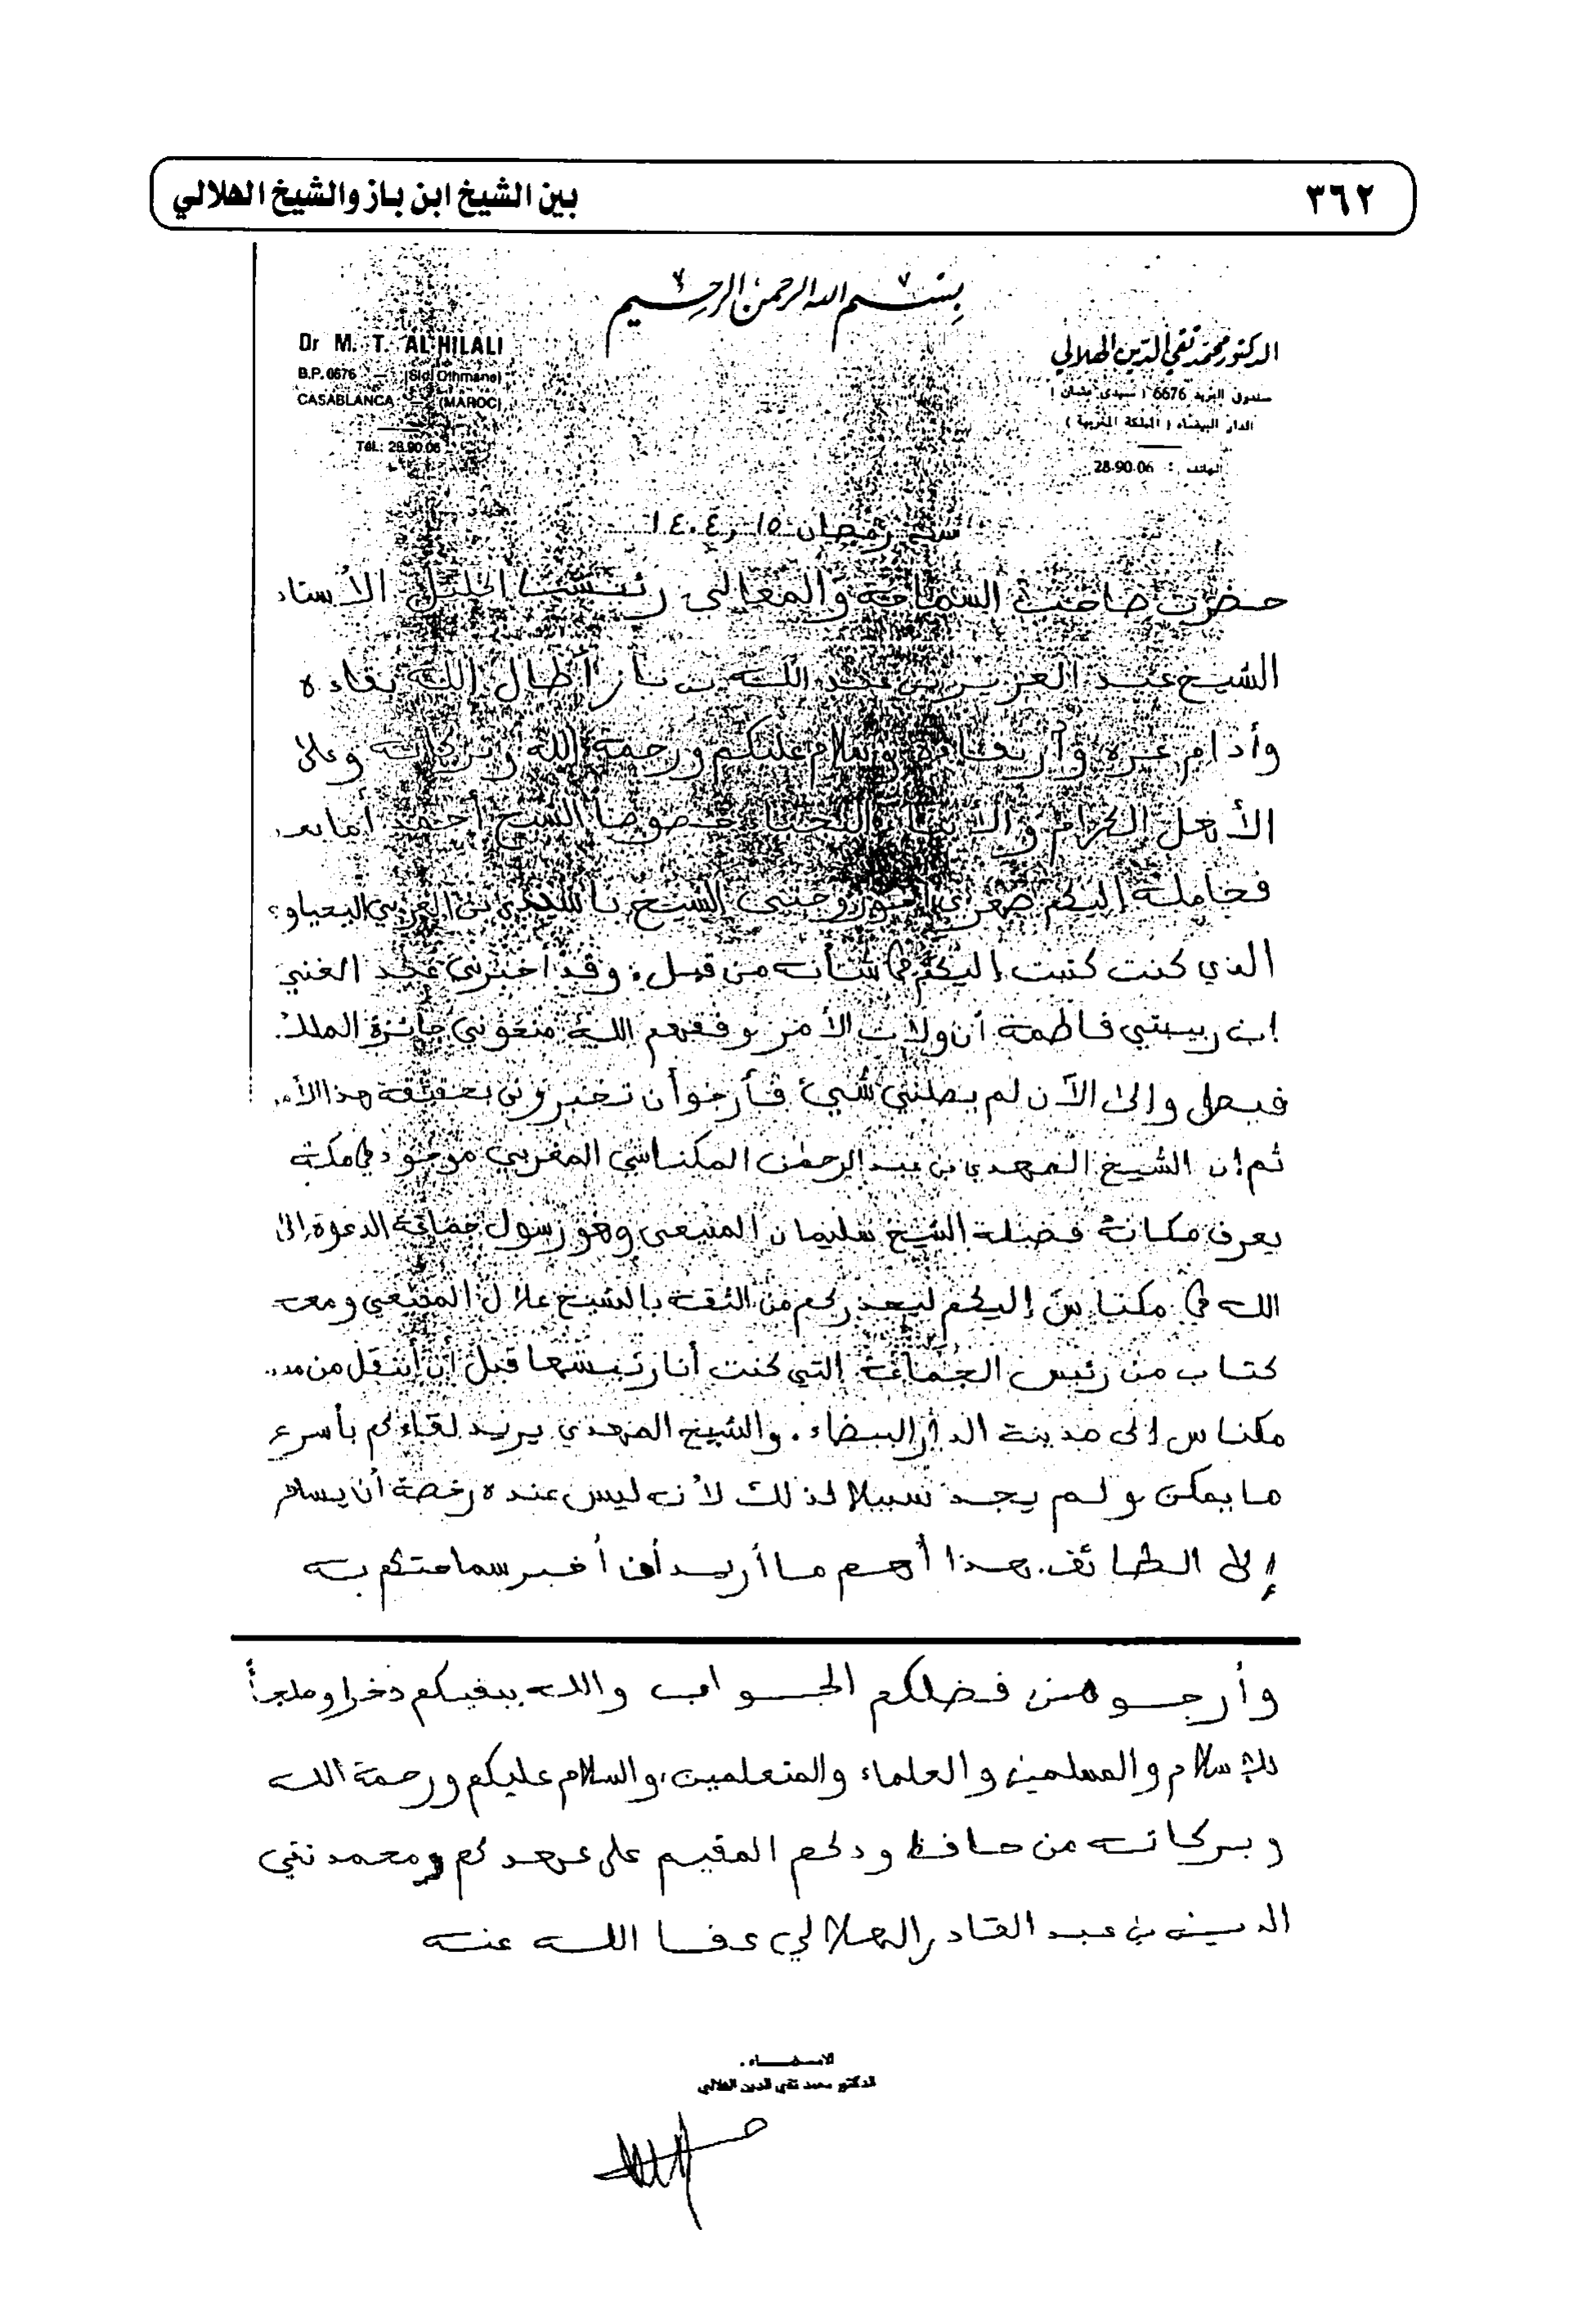 ٣٦٢
بين الشيخ ابن باز والشيخ الهلالي
بسم الله الرحمن الرحيم
الدكتور محمد تقي الدين الهلالي
صندوق البريد 6676 ( سيدي عثمان )
الدار البيضاء ( المملكة المغربية )
الهاتف : 28-90-06
Dr M. T. AL HILALI
B.P. 6676 — (Sidi Othmane)
CASABLANCA — (MAROC)
Tél.: 28.90.06
رمضان ١٥ ١٤٠٤
حضرت صاحب السماحة والمعالي رئيسنا الجليل الأستاذ
الشيخ عبد العزيز بن عبد الله بن باز أطال الله بقاءه
وأدام عزه وسلام عليكم ورحمة الله وبركاته وعلى
الأهل الكرام والأبناء خصوصا الشيخ أحمد أما بعد
فحاملة إليكم الشيخ بن العربي اليحياوي
الذي كنت كتبت إليكم في شأنه من قبل، وقد أخبرني عبد الغني
ابن ربيبتي فاطمة أن ولات الأمر وفقهم الله منحوني جائزة الملك
فيصل وإلى الآن لم يصلني شيئ فأرجوا أن تخبروني بحقيقة هذا الأمر
ثم إن الشيخ المهدي بن عبد الرحمٰن المكناسي المغربي موجود في مكة
يعرف مكانه فضيلة الشيخ سليمان المنيعي وهو رسول جماعة الدعوة إلى
الله في مكناس إليكم ليحذركم من الثقة بالشيخ علال ومعه
كتاب من رئيس الجماعة التي كنت أنا رئيسها قبل أن أنتقل من
مكناس إلى مدينة الدار البيضاء. والشيخ المهدي يريد لقاءكم بأسرع
ما يمكن ولم يجد سبيلا لذلك لأنه ليس عنده رخصة أن يسافر
إلى الطائف. هذا أهم ما أريد أن أخبر سماحتكم به
وأرجو من فضلكم الجواب والله يبقيكم ذخرا وملجأ
للإسلام والمسلمين والعلماء والمتعلمين، والسلام عليكم ورحمة الله
وبركاته من حافظ ودكم المقيم على عهدكم محمد تقي
الدين بن عبد القادر الهلالي عفا الله عنه
الامضاء .
الدكتور محمد تقي الدين الهلالي